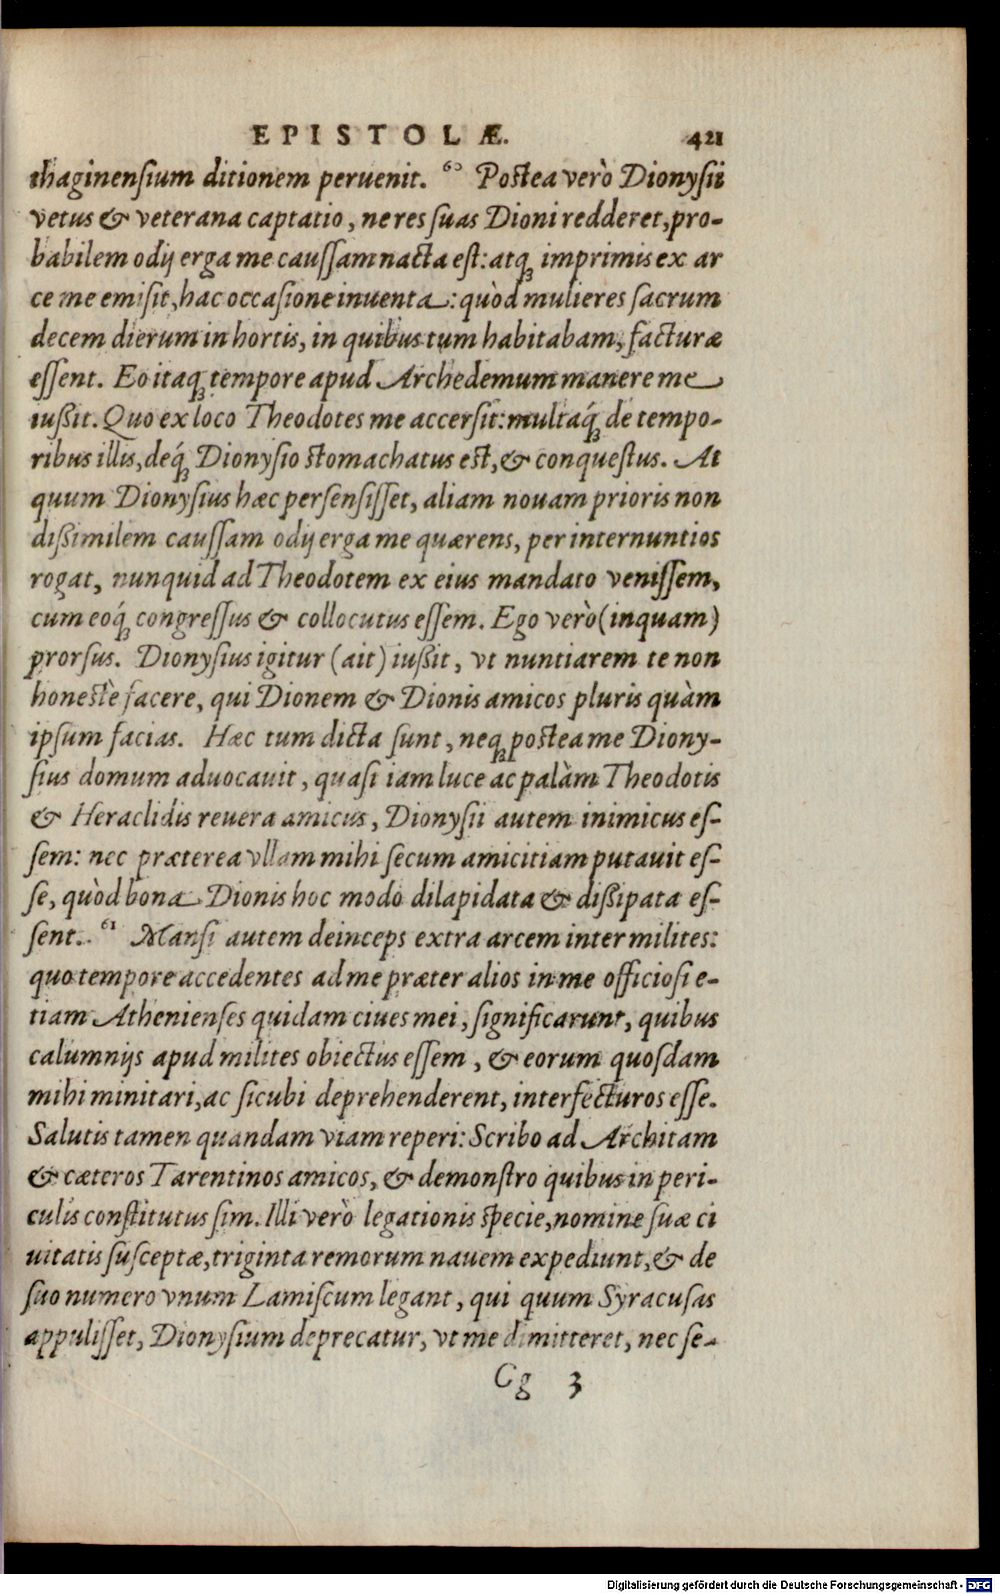 EPISTOLÆ. 421
thaginensium ditionem peruenit. 60 Postea verò Dionysii
vetus & veterana captatio, ne res suas Dioni redderet, pro-
babilem odij erga me caussam nacta est: atq; imprimis ex ar
ce me emisit, hac occasione inuenta: quòd mulieres sacrum
decem dierum in hortis, in quibus tum habitabam, facturæ
essent. Eo itaq; tempore apud Archedemum manere me
iußit. Quo ex loco Theodotes me accersit: multaq́; de tempo-
ribus illis, deq́; Dionysio stomachatus est, & conquestus. At
quum Dionysius hæc persensisset, aliam nouam prioris non
dißimilem caussam odij erga me quærens, per internuntios
rogat, nunquid ad Theodotem ex eius mandato venissem,
cum eoq́; congressus & collocutus essem. Ego verò (inquam)
prorsus. Dionysius igitur (ait) iußit, vt nuntiarem te non
honestè facere, qui Dionem & Dionis amicos pluris quàm
ipsum facias. Hæc tum dicta sunt, neq; postea me Diony-
sius domum aduocauit, quasi iam luce ac palàm Theodotis
& Heraclidis reuera amicus, Dionysii autem inimicus es-
sem: nec præterea vllam mihi secum amicitiam putauit es-
se, quòd bona Dionis hoc modo dilapidata & dißipata es-
sent. 61 Mansi autem deinceps extra arcem inter milites:
quo tempore accedentes ad me præter alios in me officiosi e-
tiam Athenienses quidam ciues mei, significarunt, quibus
calumnijs apud milites obiectus essem, & eorum quosdam
mihi minitari, ac sicubi deprehenderent, interfecturos esse.
Salutis tamen quandam viam reperi: Scribo ad Architam
& cæteros Tarentinos amicos, & demonstro quibus in peri-
culis constitutus sim. Illi verò legationis specie, nomine suæ ci
uitatis susceptæ, triginta remorum nauem expediunt, & de
suo numero vnum Lamiscum legant, qui quum Syracusas
appulisset, Dionysium deprecatur, vt me dimitteret, nec se-
Gg 3
Digitalisierung gefördert durch die Deutsche Forschungsgemeinschaft - DFG